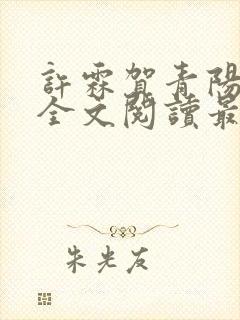 許霖賀青陽
全文閱讀最
朱光友